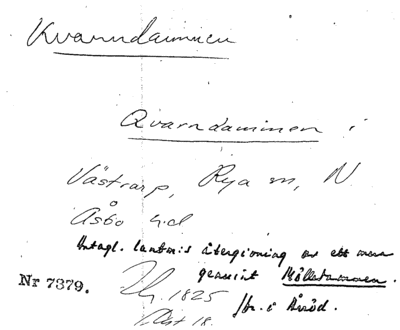 Kvarndammen
Qvarndammen i
Västrarp, Rya sn, N
Åsbo hd
Antagl. lantmis återgivning av ett mera
genuint Mölledammen.
Nr 7379.
1825
i